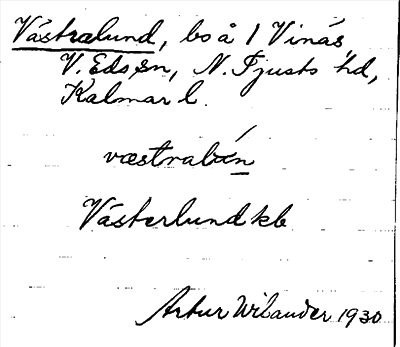 Västralund, bo å 1 Vinäs,
V. Eds sn, N. Tjusts hd,
Kalmar l.
væstralún
Västerlund kb
Artur Wilander 1930